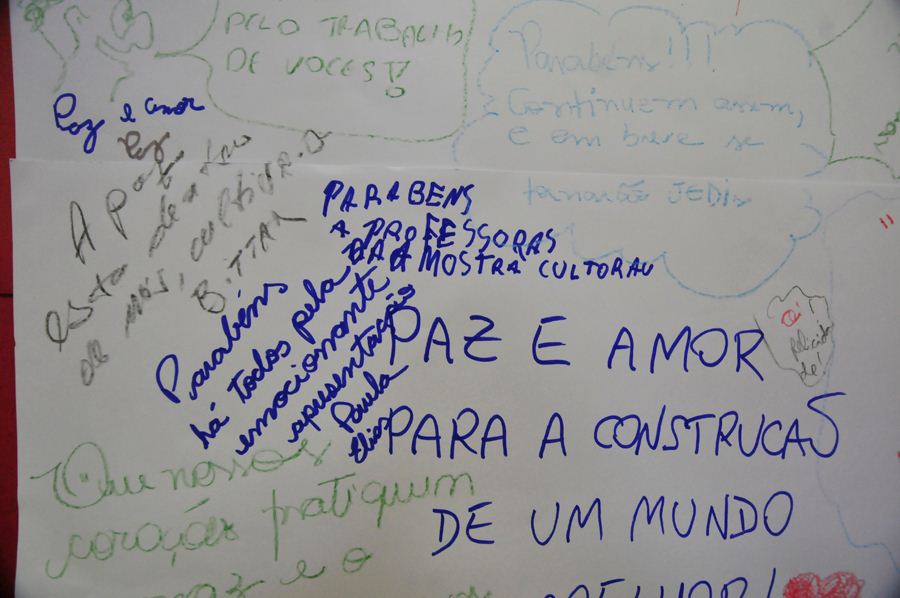 PELO TRABALHO
DE VOCES!!
Parabéns!!!
Continuem assim,
e em breve se
JEDIs
Paz e amor
Paz
A paz
está dentro
de nós, cultiva-a
BITTAR
PARABENS
A PROFESSORAS
DA A MOSTRA CULTORAU
Parabéns
há todos pela
emocionante
apresentação
Paula
Elias
PAZ E AMOR
PARA A CONSTRUCAÕ
DE UM MUNDO
MELHOR!
Oi!
Que nossos
corações pratiquem
paz e o